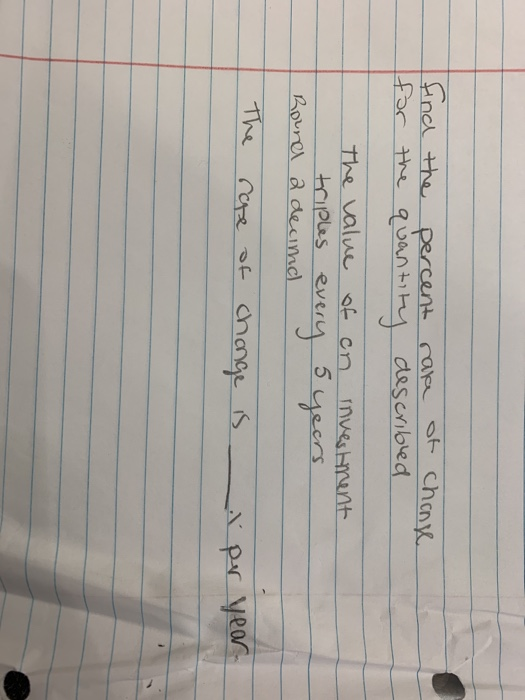 find the percent rate of change
for the quantity described
The value of an investment
triples every 5 years
Round 2 decimal
The rate of change is ____ % per year